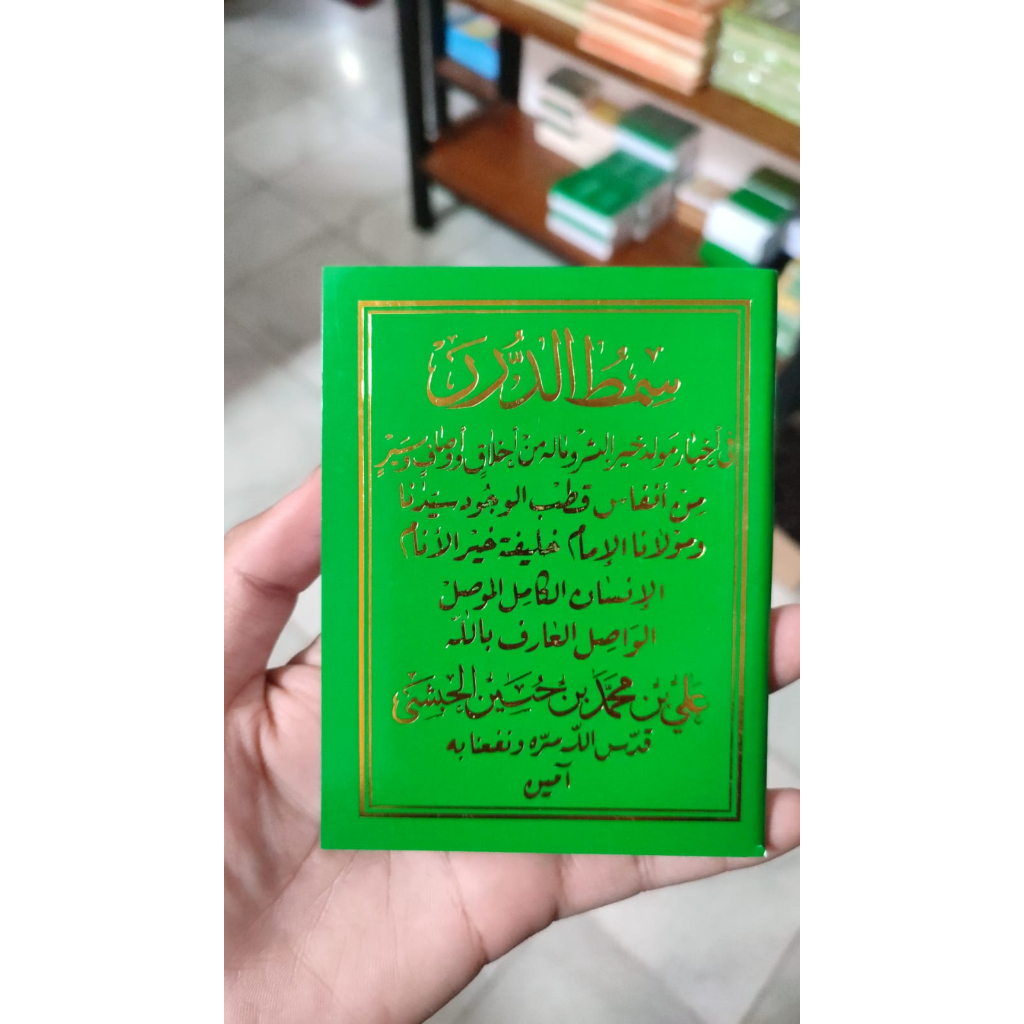 سِمْطُ الدُّرَرْ
في أخبار مولد خير البشر وماله من أخلاق وأوصاف وسير
من أنفاس قطب الوجود سيدنا
ومولانا الإمام خليفة خير الأنام
الإنسان الكامل الموصل
الواصل العارف بالله
علي بن محمد بن حسين الحبشي
قدس الله سره ونفعنا به
آمين